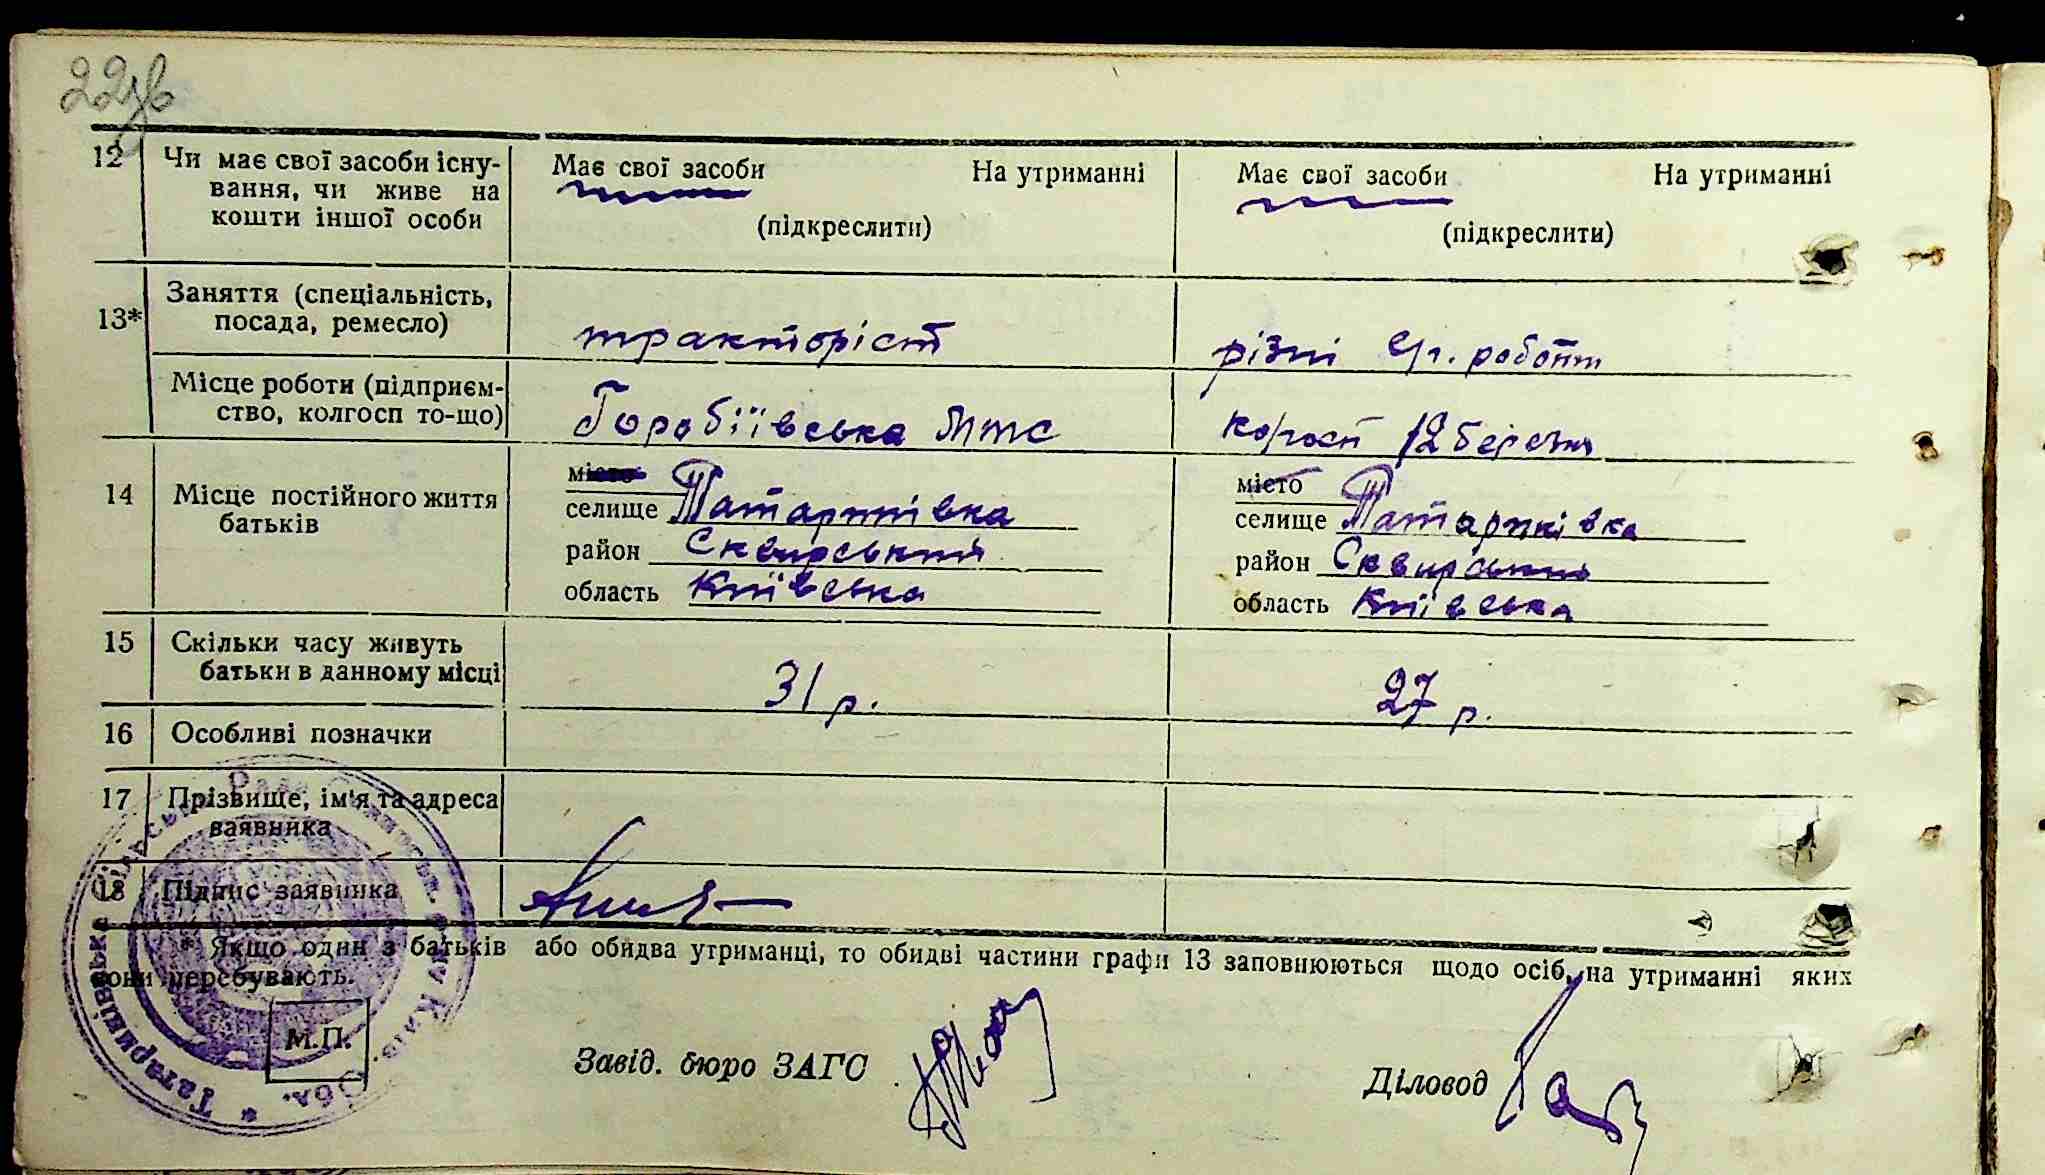 22зв
12 Чи має свої засоби існу-
вання, чи живе на
кошти іншої особи
Має свої засоби На утриманні
(підкреслити)
Має свої засоби На утриманні
(підкреслити)
13* Заняття (спеціальність,
посада, ремесло)
тракторіст
різні с/г. роботи
Місце роботи (підприєм-
ство, колгосп то-що)
Горобіївська МТС
колгосп 12 березня
14 Місце постійного життя
батьків
місто
селище Татаринівка
район Сквирський
область Київська
місто
селище Татаринівка
район Сквирський
область Київська
15 Скільки часу живуть
батьки в данному місці
31 р.
27 р.
16 Особливі позначки
17 Прізвище, ім'я та адреса
заявника
18 Підпис заявника
* Якщо один з батьків або обидва утриманці, то обидві частини графи 13 заповнюються щодо осіб, на утриманні яких
вони перебувають.
М.П.
Завід. бюро ЗАГС
Діловод